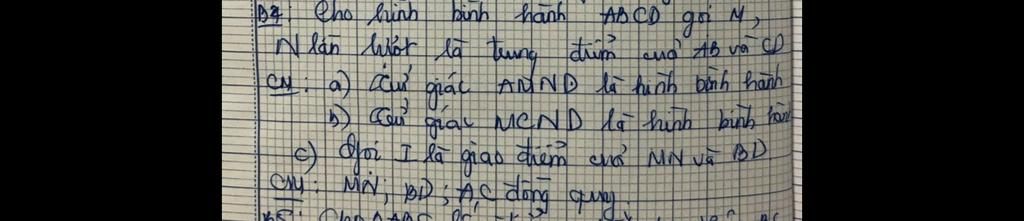 B4: Cho hình bình hành ABCD gọi M,
N lần lượt là trung điểm của AB và CD
CM: a) Tứ giác AMND là hình bình hành
b) Tứ giác MCND là hình bình hành
c) Gọi I là giao điểm của MN và BD
CM: MN; BD; AC đồng quy.